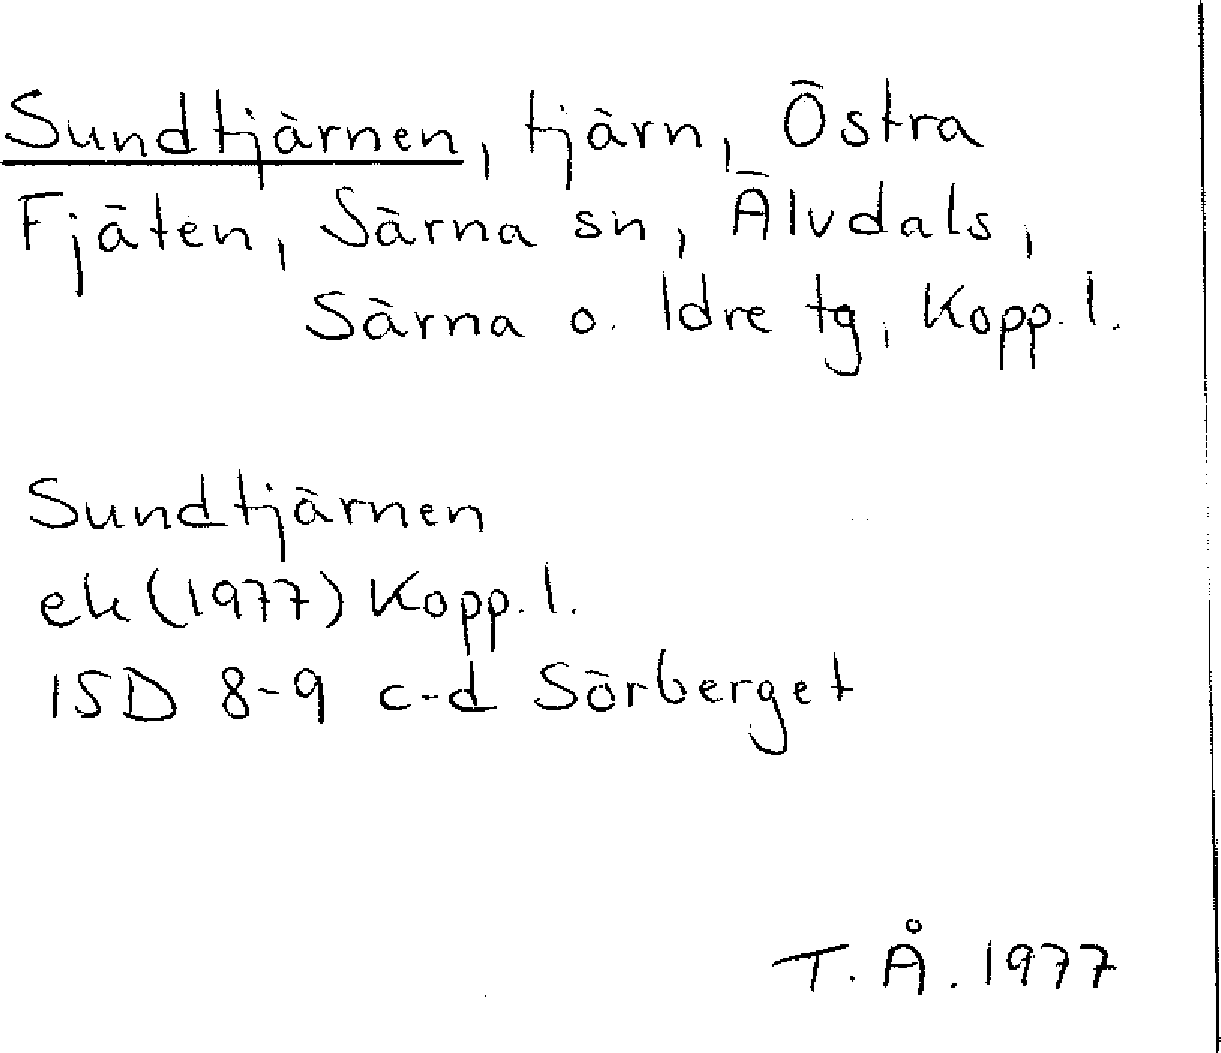 Sundtjärnen, tjärn, Östra
Fjäten, Särna sn, Älvdals,
Särna o. Idre tg, Kopp. l.
Sundtjärnen
ek (1977) Kopp. l.
15D 8-9 c-d Sörberget
T. Å. 1977